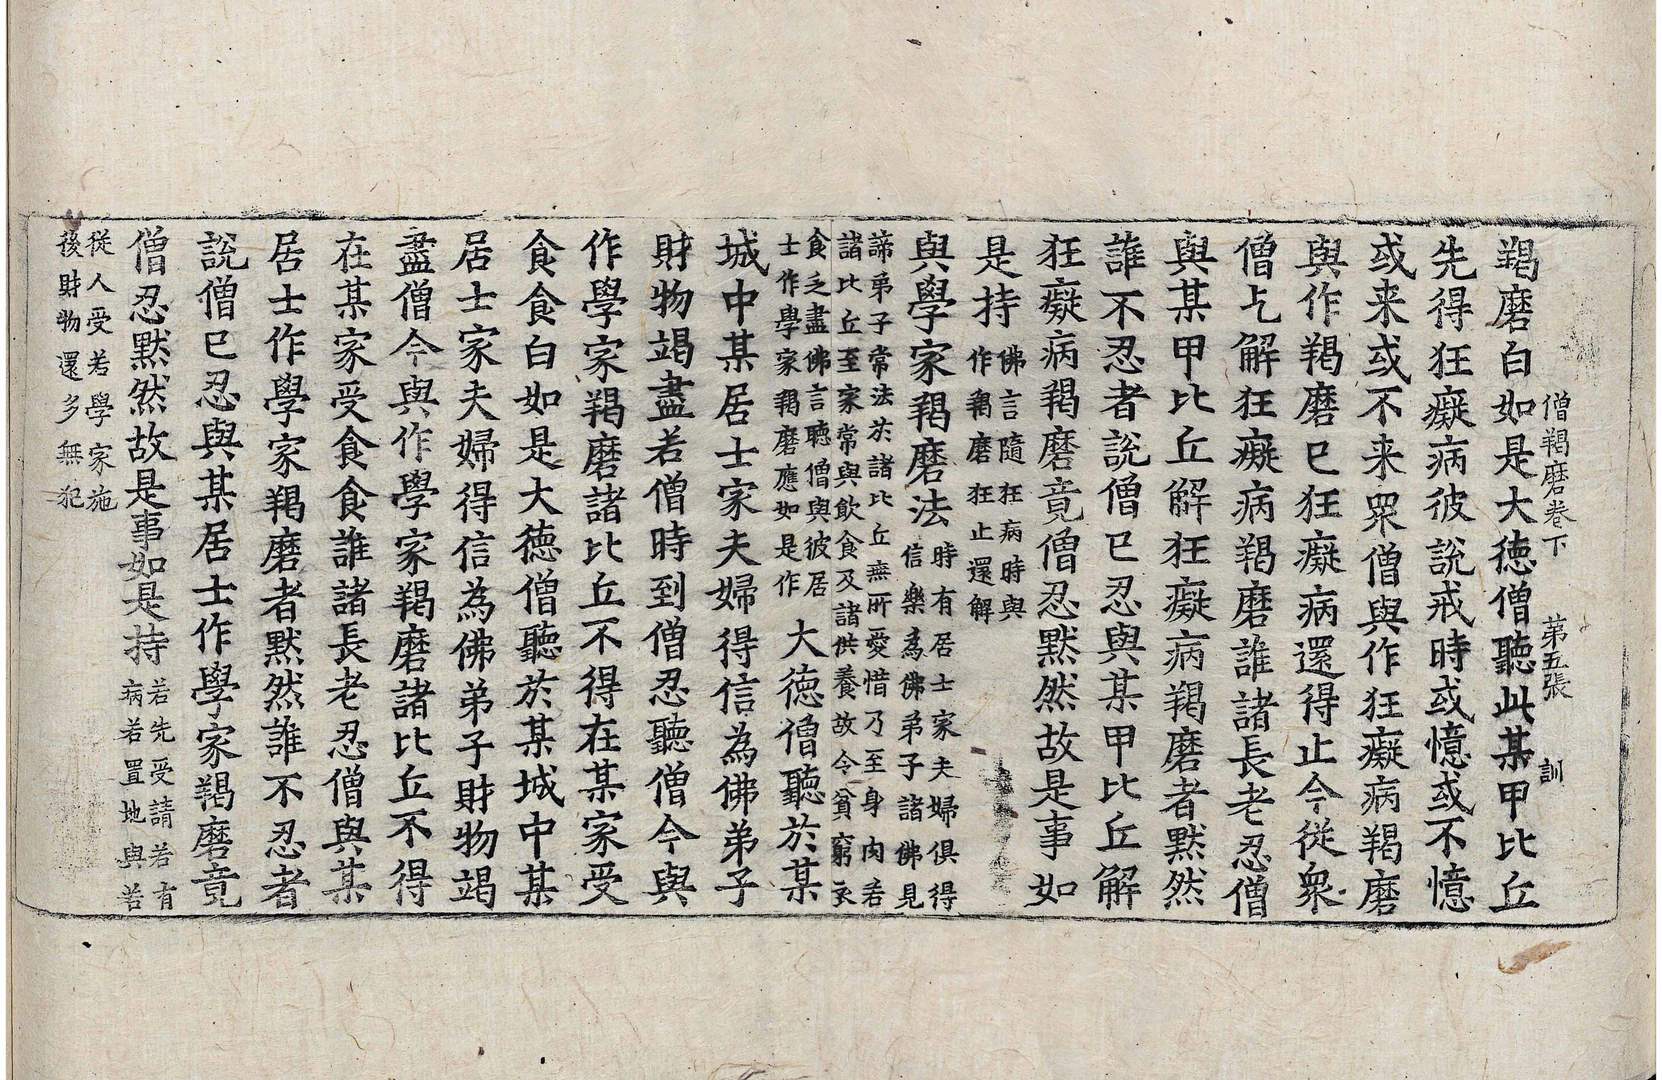 僧羯磨卷下 第五張 訓
羯磨白如是大徳僧聽此某甲比丘
先得狂癡病彼說戒時或憶或不憶
或来或不来眾僧與作狂癡病羯磨
與作羯磨已狂癡病還得止今從眾
僧乞解狂癡病羯磨誰諸長老忍僧
與某甲比丘解狂癡病羯磨者默然
誰不忍者說僧已忍與某甲比丘解
狂癡病羯磨竟僧忍默然故是事如
是持 佛言隨狂病時與
作羯磨狂止還解
與學家羯磨法 時有居士家夫婦俱得
信樂為佛弟子諸佛見
諦弟子常法於諸比丘無所愛惜乃至身肉若
諸比丘至家常與飲食及諸供養故令貧窮衣
食乏盡佛言聽僧與彼居
士作學家羯磨應如是作 大徳僧聽於某
城中某居士家夫婦得信為佛弟子
財物竭盡若僧時到僧忍聽僧今與
作學家羯磨諸比丘不得在某家受
食食白如是大徳僧聽於某城中某
居士家夫婦得信為佛弟子財物竭
盡僧今與作學家羯磨諸比丘不得
在某家受食食誰諸長老忍僧與某
居士作學家羯磨者默然誰不忍者
說僧已忍與某居士作學家羯磨竟
僧忍默然故是事如是持 若先受請若有
病若置地與若
從人受若學家施
後財物還多無犯